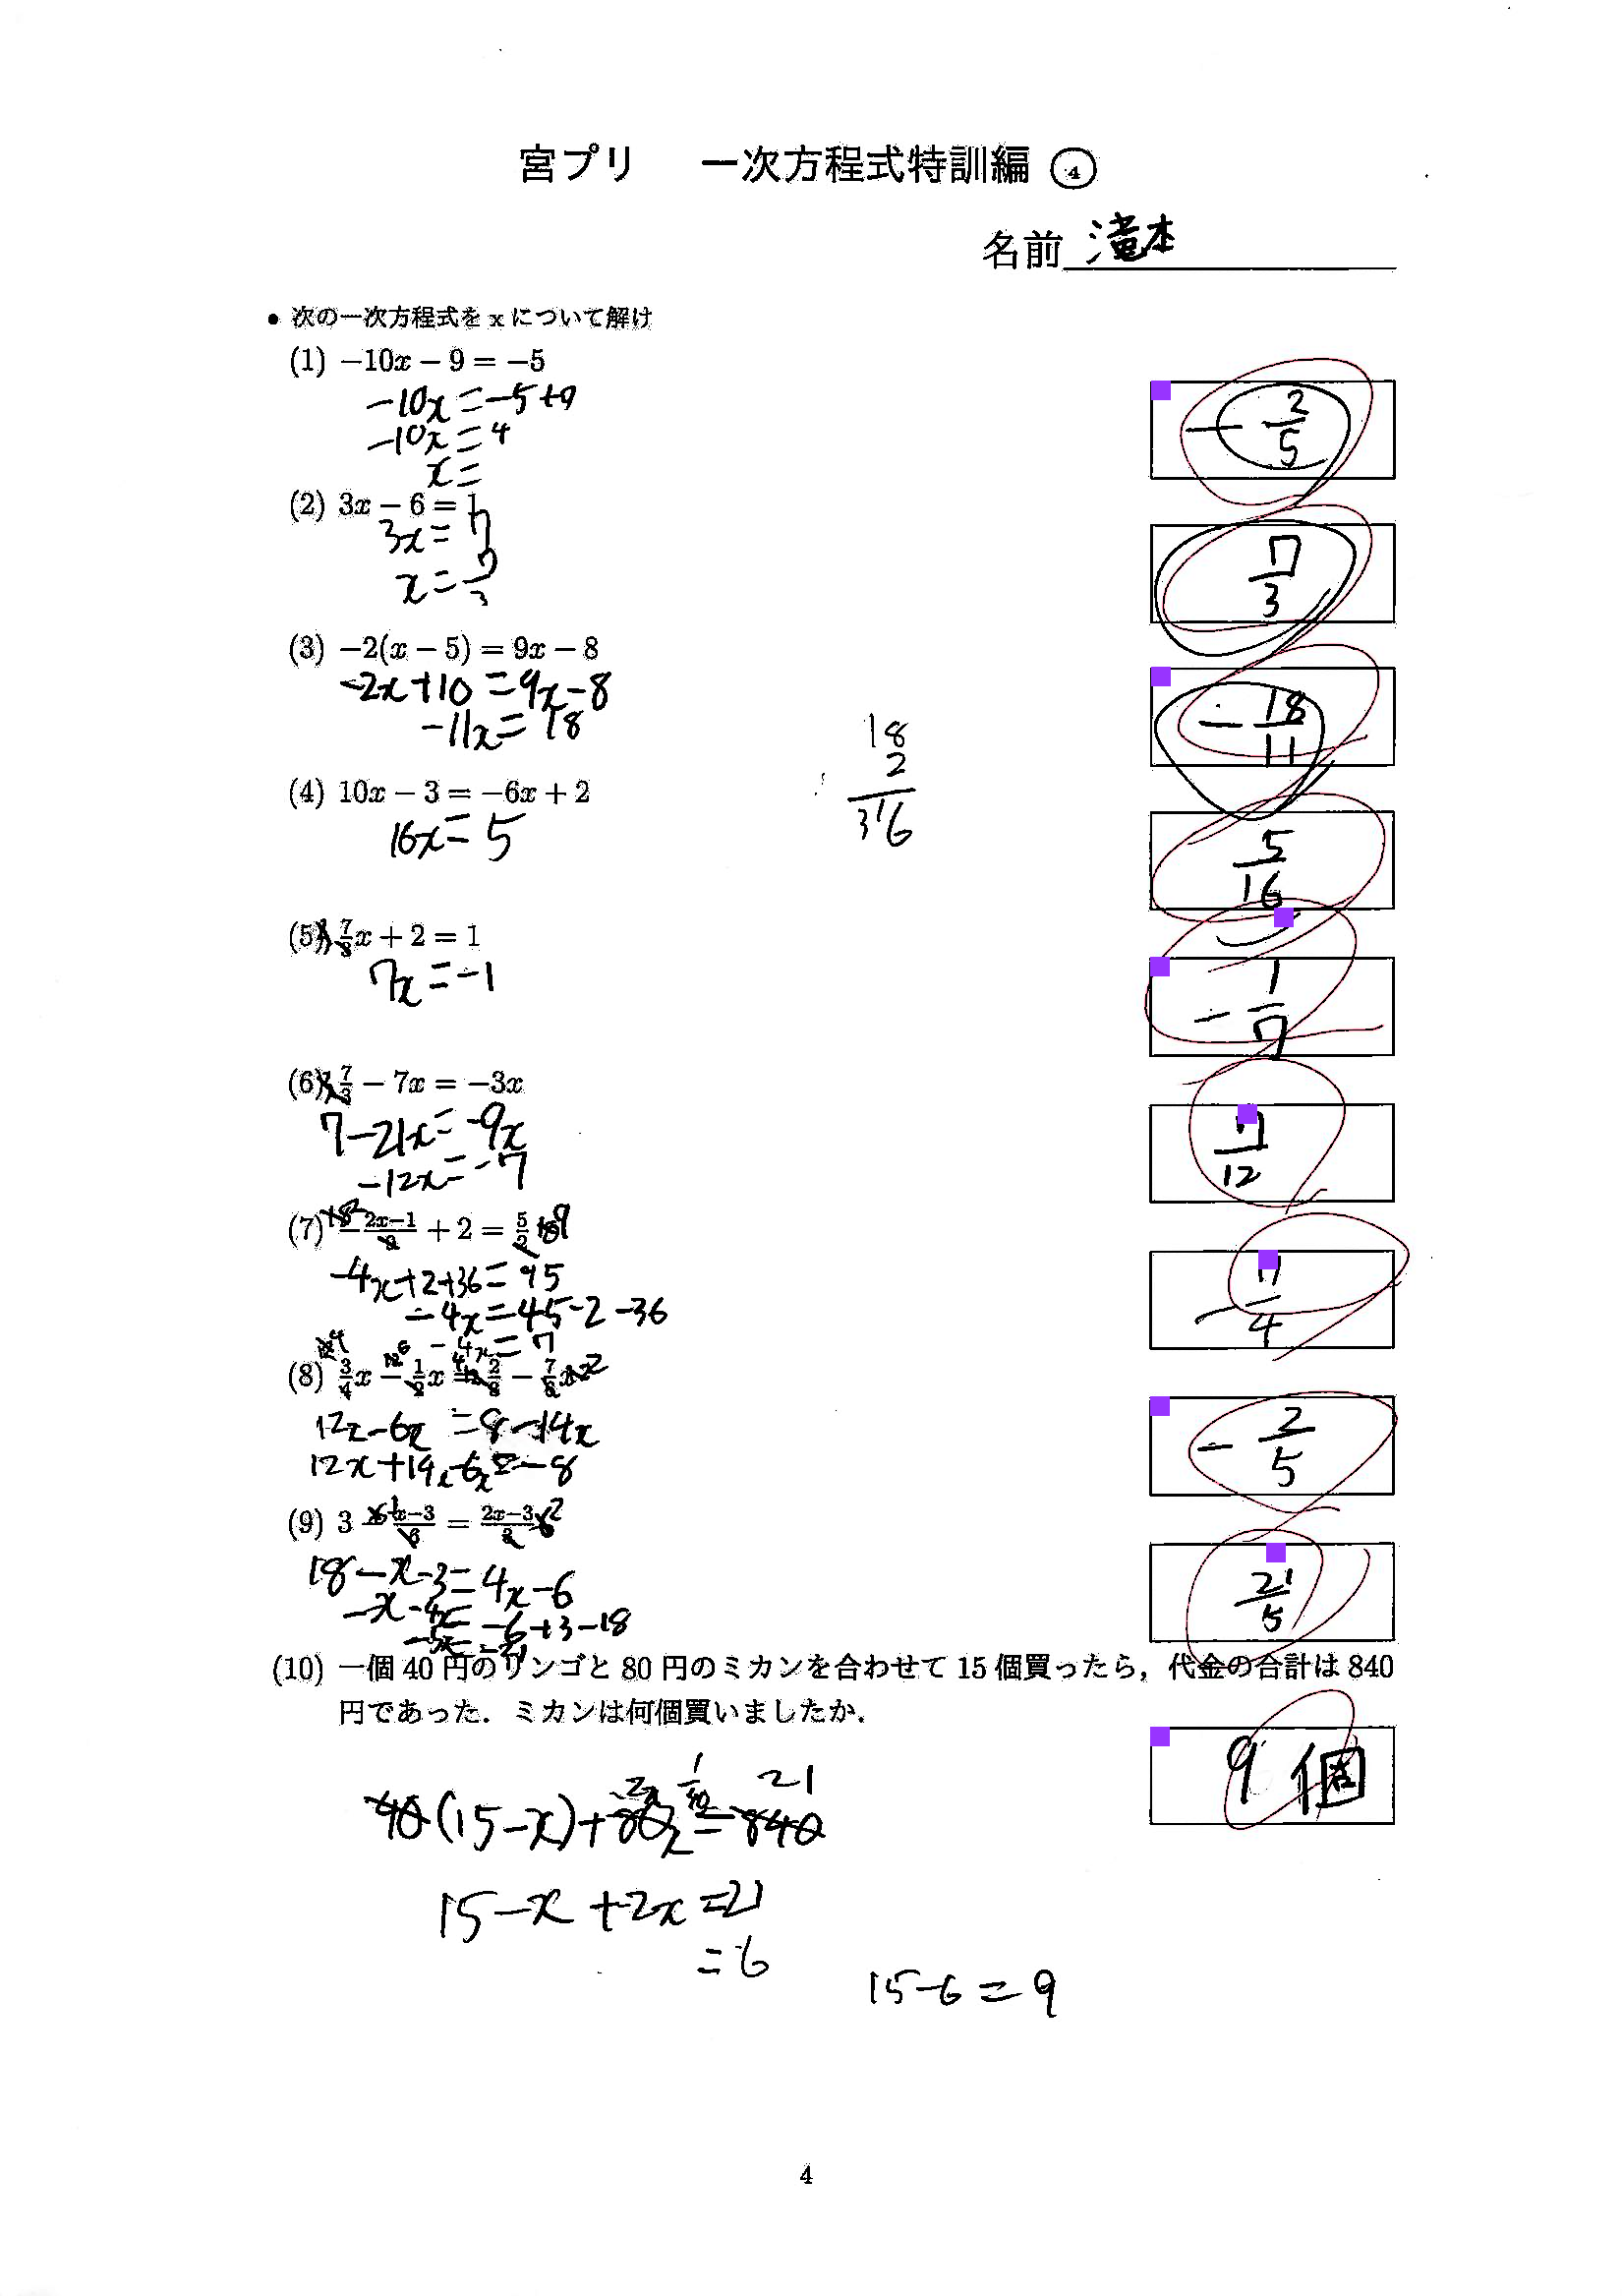 宮プリ 一次方程式特訓編 ④
名前 滝本
• 次の一次方程式を x について解け
(1) −10x − 9 = −5
−10x = −5+9
−10x = 4
x =
− 2/5
(2) 3x − 6 = 1
3x = 7
x = 7/3
7/3
(3) −2(x − 5) = 9x − 8
−2x+10 = 9x−8
−11x = 18
− 18/11
18
2
316
(4) 10x − 3 = −6x + 2
16x = 5
5/16
(5) 7/3 x + 2 = 1
7x = −1
− 1/7
(6) 7/3 − 7x = −3x
7−21x = −9x
−12x = −7
7/12
(7) − 2x−1/9 + 2 = 5/2
−4x+2+36 = 45
−4x = 45−2−36
−4x = 7
− 7/4
(8) 3/4 x − 1/2 x = − 7/
12x−6x = 8−14x
12x+14x−6x = −8
− 2/5
(9) 3 − x−3/6 = 2x−3/3
18−x−3 = 4x−6
−x−4x = −6+3−18
−5x = −21
21/5
(10) 一個 40 円のリンゴと 80 円のミカンを合わせて 15 個買ったら，代金の合計は 840
円であった．ミカンは何個買いましたか．
9 個
21
40(15−x)+80x = 840
15−x+2x = 21
= 6
15−6 = 9
4